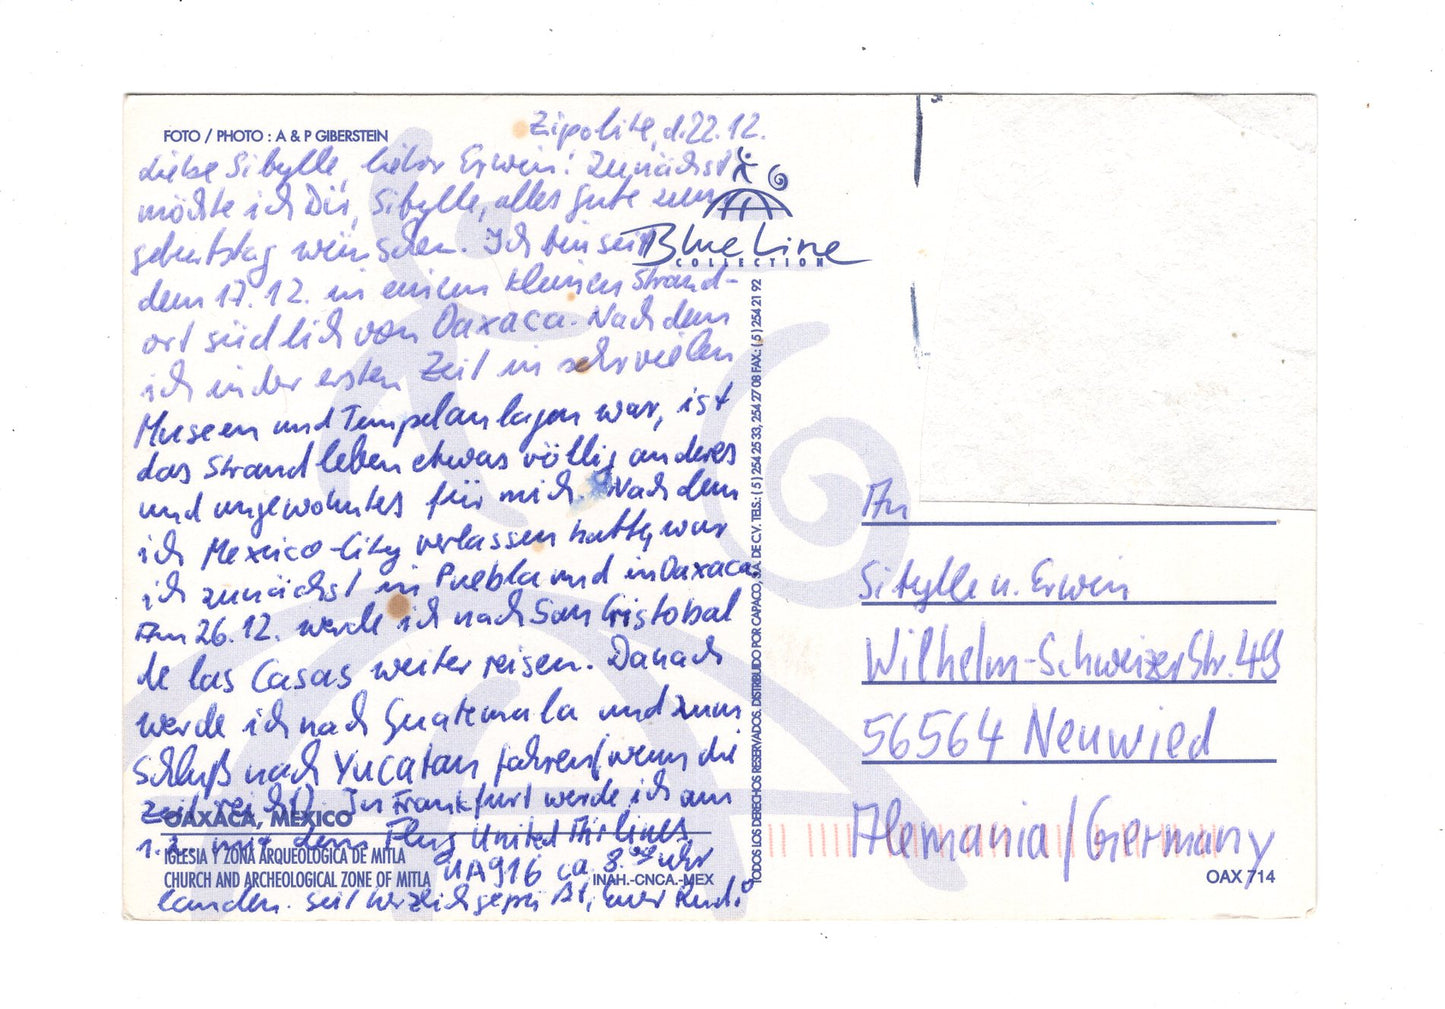 FOTO / PHOTO : A & P GIBERSTEIN
Zipolite, d. 22.12.
Liebe Sibylle, lieber Erwin! Zunächst
möchte ich Dir, Sibylle, alles Gute zum
Geburtstag wünschen. Ich bin seit
dem 17.12. in einem kleinen Strand-
ort südlich von Oaxaca. Nachdem
ich in der ersten Zeit in sehr vielen
Museen und Tempelanlagen war, ist
das Strandleben etwas völlig anderes
und ungewohntes für mich. Nachdem
ich Mexico-City verlassen hatte, war
ich zunächst in Puebla und in Oaxaca
Am 26.12. werde ich nach San Cristobal
de las Casas weiter reisen. Danach
werde ich nach Guatemala und zum
Schluß nach Yucatan fahren (wenn die
Zeit reicht). In Frankfurt werde ich am
1.2. mit dem Flug United Airlines
UA916 ca. 8. Uhr
landen. Seit herzlich gegrüßt, Euer Rudi
OAXACA, MEXICO
IGLESIA Y ZONA ARQUEOLOGICA DE MITLA
CHURCH AND ARCHEOLOGICAL ZONE OF MITLA
INAH.-CNCA.-MEX
Blue Line
COLLECTION
TODOS LOS DERECHOS RESERVADOS. DISTRIBUIDO POR CAPACO, S.A. DE C.V. TELS.: ( 5 ) 254 25 33, 254 27 08 FAX.: ( 5 ) 254 21 92
An
Sibylle u. Erwin
Wilhelm-Schweizer Str. 49
56564 Neuwied
Alemania/Germany
OAX 714